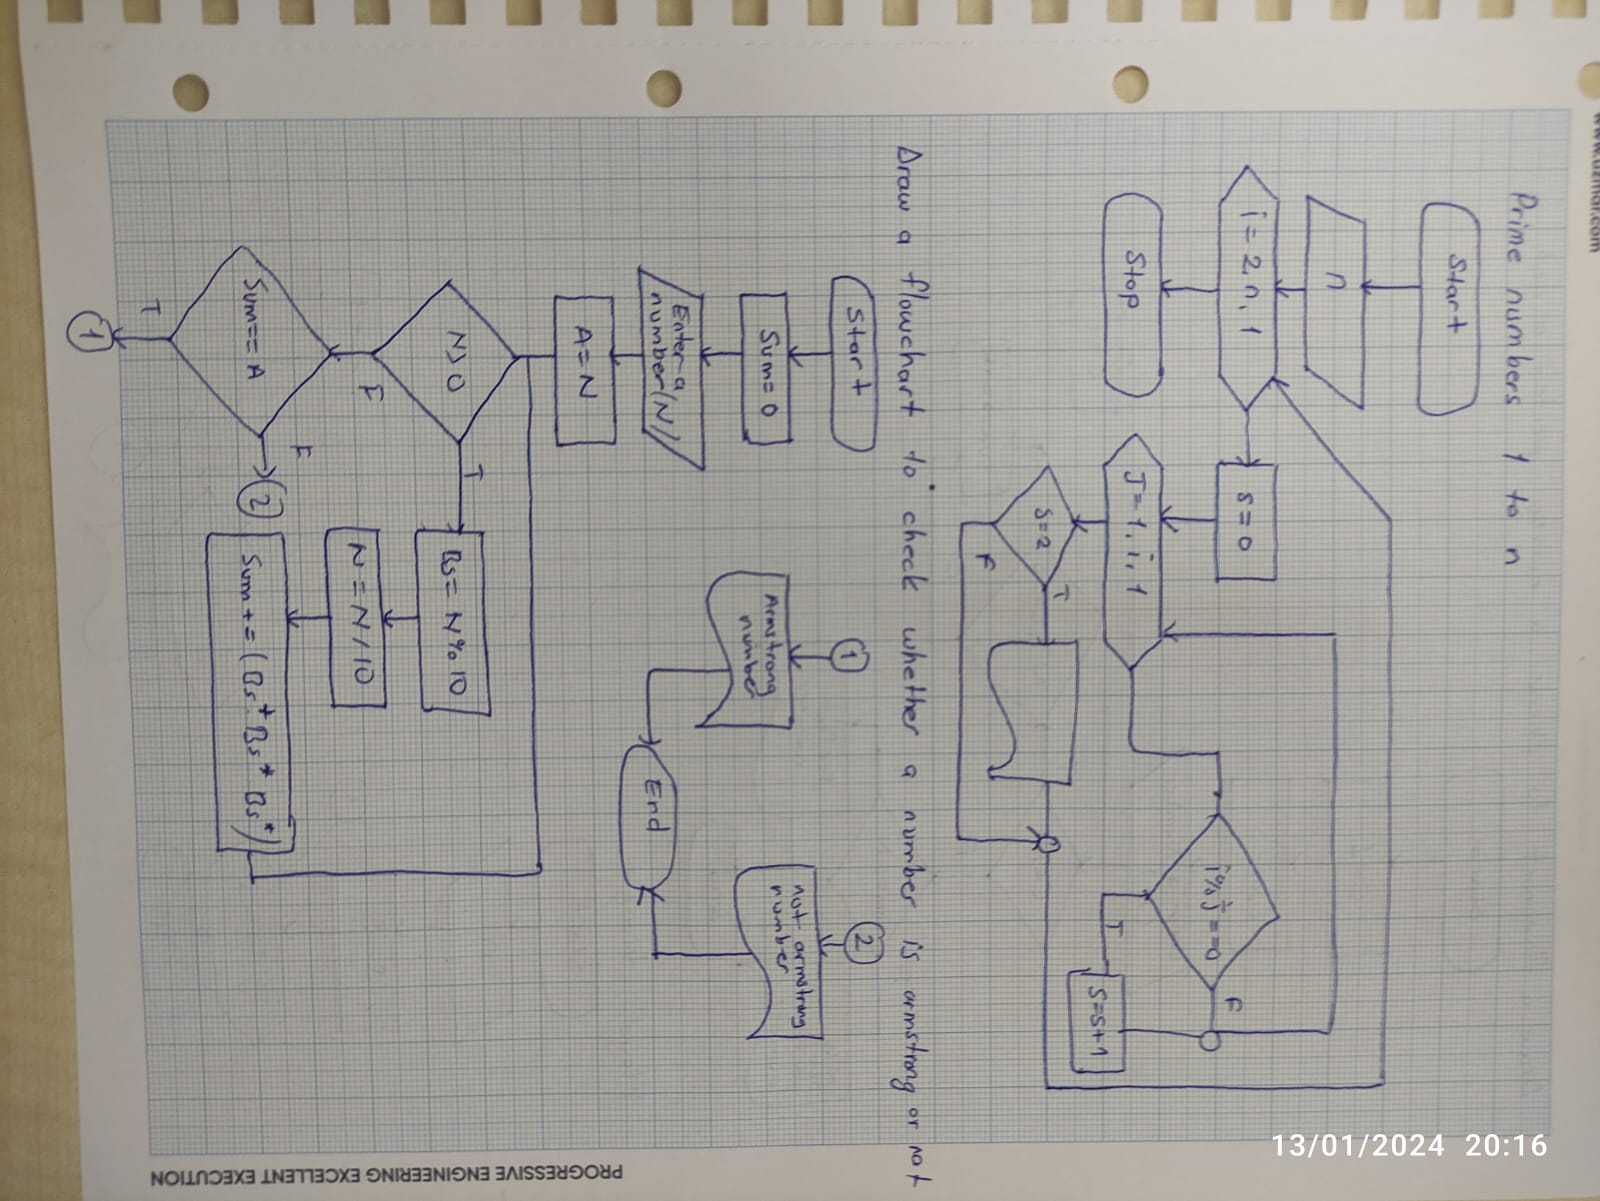 www.uzmar.com
Prime numbers 1 to n
Start
n
i=2n,1
Stop
s=0
J=1,i,1
i%j==0
T
F
S=S+1
S=2
T
F
Draw a flowchart to check whether a number is armstrong or not
Start
Sum=0
Enter a
number(N)
A=N
N>0
T
F
Bs=N%10
N=N/10
Sum+=(Bs*Bs*Bs*)
Sum==A
T
F
1
2
1
Armstrong
number
2
not armstrong
number
End
PROGRESSIVE ENGINEERING EXCELLENT EXECUTION
13/01/2024 20:16